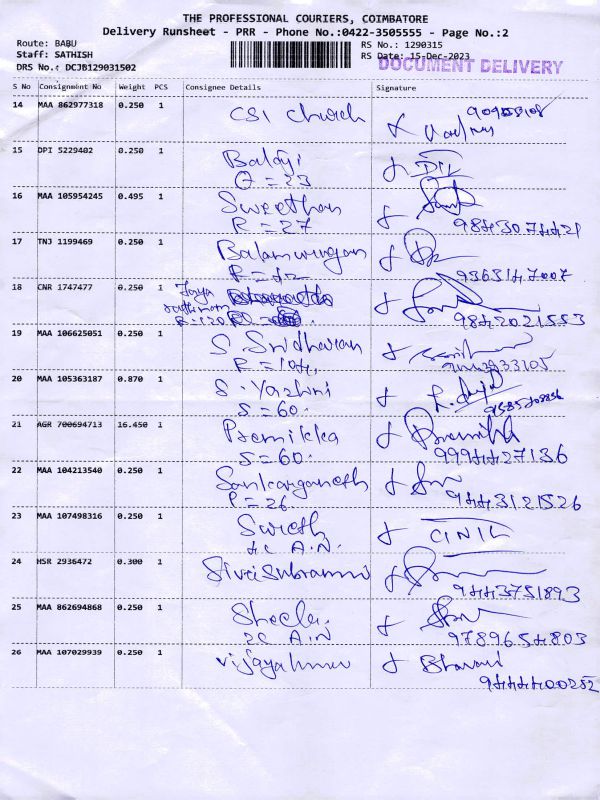 THE PROFESSIONAL COURIERS, COIMBATORE
Delivery Runsheet - PRR - Phone No.:0422-3505555 - Page No.:2
Route: BABU
Staff: SATHISH
DRS No.: DCJB129031502
RS No.: 1290315
RS Date: 15-Dec-2023
DOCUMENT DELIVERY
S No Consignment No Weight PCS Consignee Details Signature
14 MAA 862977318 0.250 1 CSI Church
15 DPI 5229402 0.250 1 Balaji
16 MAA 105954245 0.495 1 Sweethan
R = 27 9843074421
17 TNJ 1199469 0.250 1 Balamurugan
9363147007
18 CNR 1747477 0.250 1 Jaya
9842021553
19 MAA 106625051 0.250 1 S. Sridharan
20 MAA 105363187 0.870 1 S. Yazhni
S = 60.
21 AGR 700694713 16.450 1 Premikka
S = 60. 9994427136
22 MAA 104213540 0.250 1 Sankarganesh
P = 26 9443121526
23 MAA 107498316 0.250 1 Suresh
4C A.N.
24 HSR 2936472 0.300 1 Sivasubramni
9443751893
25 MAA 862694868 0.250 1 Sheela
2C A.N 9789654803
26 MAA 107029939 0.250 1 Vijayakumar
9444400252